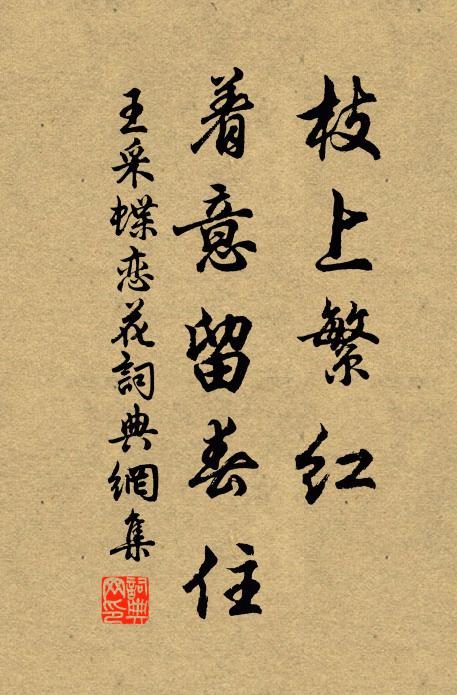 枝上繁红
着意留春住
王采蝶恋花詞典網集
詞典网印